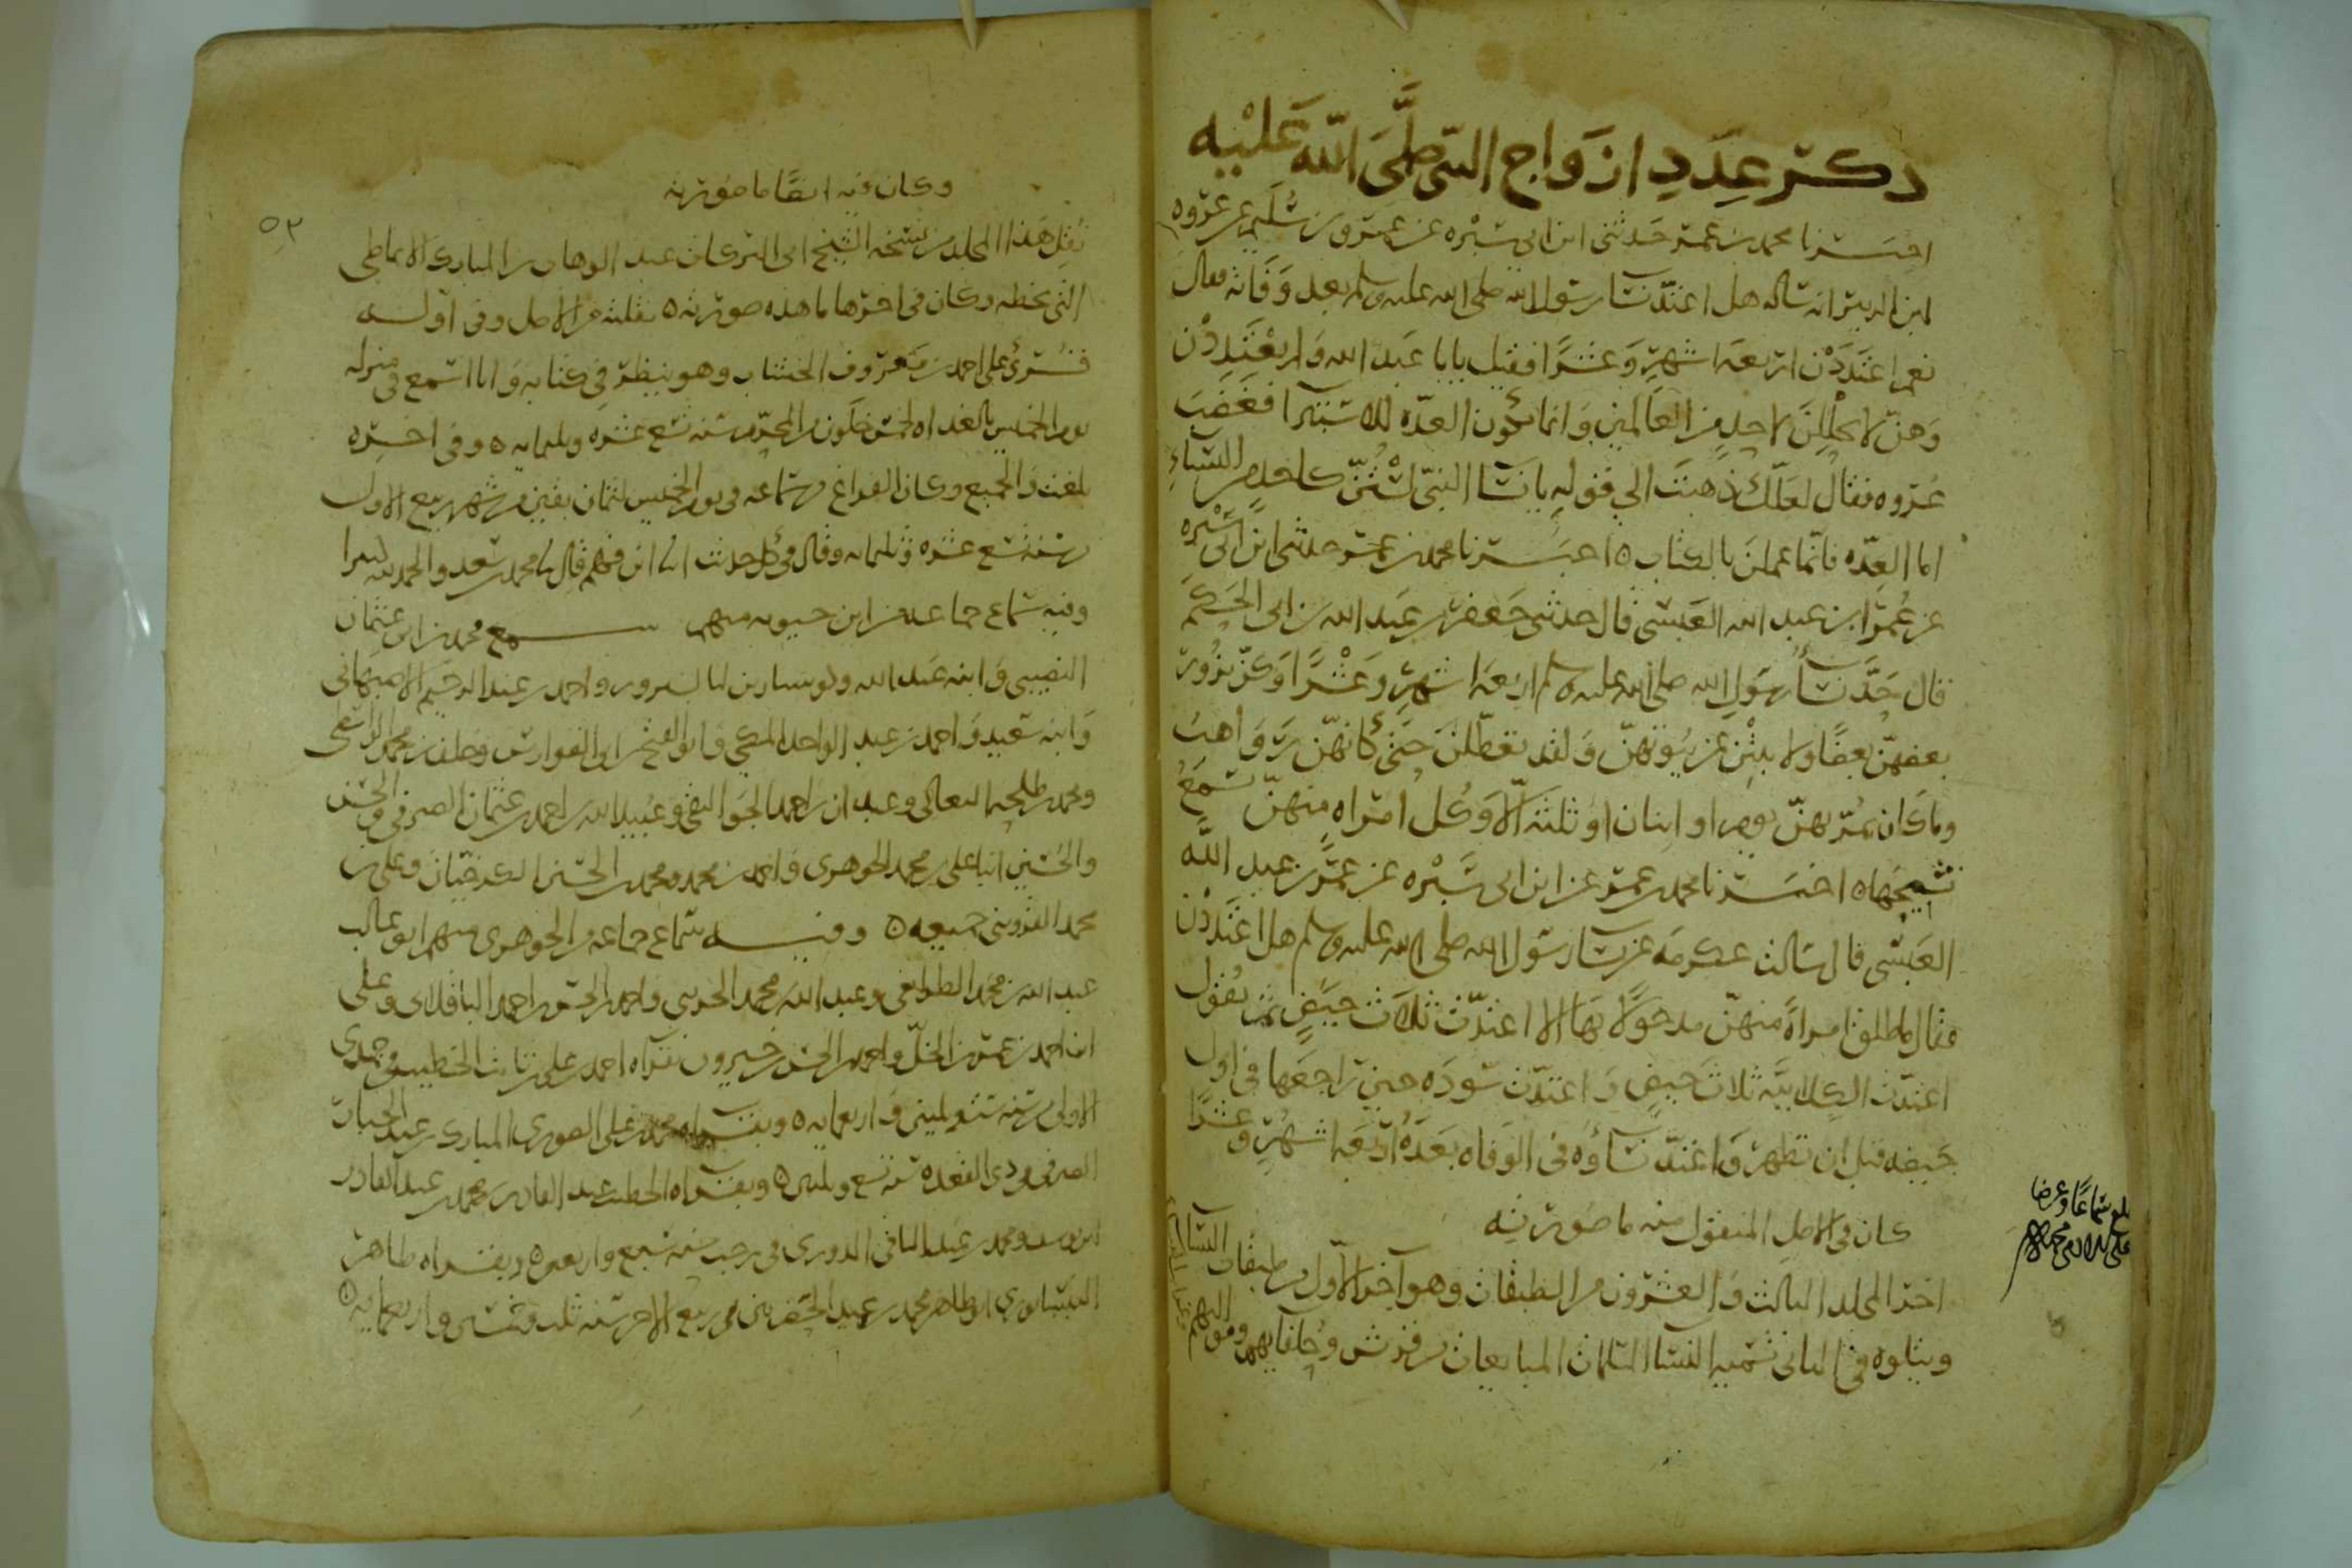 ذكر عدد ازواج النبي صلى الله عليه
اخبرنا محمد بن عمر حدثني ابن ابي سبره عن عمرو بن سليم عن عروه
ابن الزبير انه ساله هل اعتدّ نسا رسول الله صلى الله عليه وسلم بعد وفاته فقال
نعم اعتددن اربعه اشهر وعشرا فقيل يا با عبد الله ولم يعتددن
وهنّ لا يحللن لاحد من العالمين وانما تكون العدّه للاستبرآ فغضب
عروه فقال لعلّك ذهبت الى قوله يا نسا النبي لستنّ كاحد من النساء
اما العدّه فانّما عملن بالكتاب ه اخبرنا محمد بن عمر حدثني ابن ابي سبره
عن عمر ابن عبد الله العبسي قال حدثني جعفر بن عبد الله بن ابي الحكم
قال حدّ نسا رسول الله صلى الله عليه وسلم اربعه اشهر وعشرا وكنّ يزور
بعضهنّ بعضا ولا يبتن عن بيوتهنّ ولقد تعطّلن حتى كانهنّ رواهب
وما كان يمرّ بهنّ يوم او اثنان او ثلثه الّا وكل امراه منهنّ تسمع
نشيجها ه اخبرنا محمد بن عمر عن ابن ابي سبره عن عمر بن عبد الله
العبسي قال سالت عكرمه عن نسا رسول الله صلى الله عليه وسلم هل اعتددن
فقال ما طلق امراة منهنّ مدخولا بها الا اعتدّت ثلاث حيض ثم يقول
اعتدّت الكلابيّه ثلاث حيض واعتدّت سوده حين راجعها في اول
حيضه قبل ان تطهر واعتدّ نساؤه في الوفاه بعده اربعه اشهر وعشرا
كان في الاصل المنقول منه ما صورته
اخر المجلد الثالث والعشرون من الطبقات وهو آخر الاول من طبقات النسا
ويتلوه في الثاني تسميه النسا المسلمات المبايعات من قريش وحلفايهم ومواليهم
بلغ سماعا وعرضا
وكان فيه ايضا ما صورته
نقل هذا المجلد من نسخه الشيخ ابي البركات عبد الوهاب بن المبارك الانماطي
التي بخطه وكان في اخرها ما هذه صورته ه نقلته من الاصل وفي اوله
قرئ على احمد بن معروف الخشاب وهو ينظر في كتابه وانا اسمع في منزله
يوم الخميس بالغداه لخمس خلون من المحرم سنه تسع عشره وثلثمايه ه وفي اخره
بلغت والجميع وكان الفراغ من سماعه في يوم الخميس لثمان بقين من شهر ربيع الاول
سنه تسع عشره وثلثمايه وقال في كل حديث انا ابن فهم قال نا محمد بن سعد والحمد لله كثيرا
وفيه سماع جماعه من ابن حيويه منهم سمع محمد بن ابي عثمان
النصيبي وابنه عبد الله واحمد بن عبد الرحيم الاصبهاني
وابنه سعيد واحمد بن عبد الواحد المكي وابو الفتح بن ابي الفوارس وخلف بن محمد الواسطي
ومحمد بن طلحه النعالي وعبدان بن احمد الجواليقي وعبيد الله بن احمد بن عثمان الصيرفي والحسن
والحسين ابنا علي بن محمد الجوهري واحمد بن محمد ومحمد بن الحسين الكرخيان وعلي بن
محمد القزويني جميعه ه وفيه سماع جماعه من الجوهري منهم ابو غالب
عبد الله بن محمد الطوابيقي وعبد الله بن محمد واحمد بن الحسن بن احمد الباقلاني وعلي
ابن احمد بن عمر بن الخلّ واحمد بن الحسن بن خيرون بقراه احمد بن علي بن ثابت الخطيب في جمدى
الاولى سنه وثلثين واربعمايه ه وبقراه محمد بن علي الصوري المبارك بن عبد الجبار
الصيرفي في ذي القعده سنه تسع وثلثين ه وبقراه الخطيب عبد القادر بن محمد بن عبد القادر
ابن يوسف ومحمد بن عبد الباقي الدوري في رجب سنه سبع واربعين ه وبقراه طاهر
النيسابوري ابو طاهر محمد بن في ربيع الاخر سنه ثلث وخمسين واربعمايه ه
٥٣